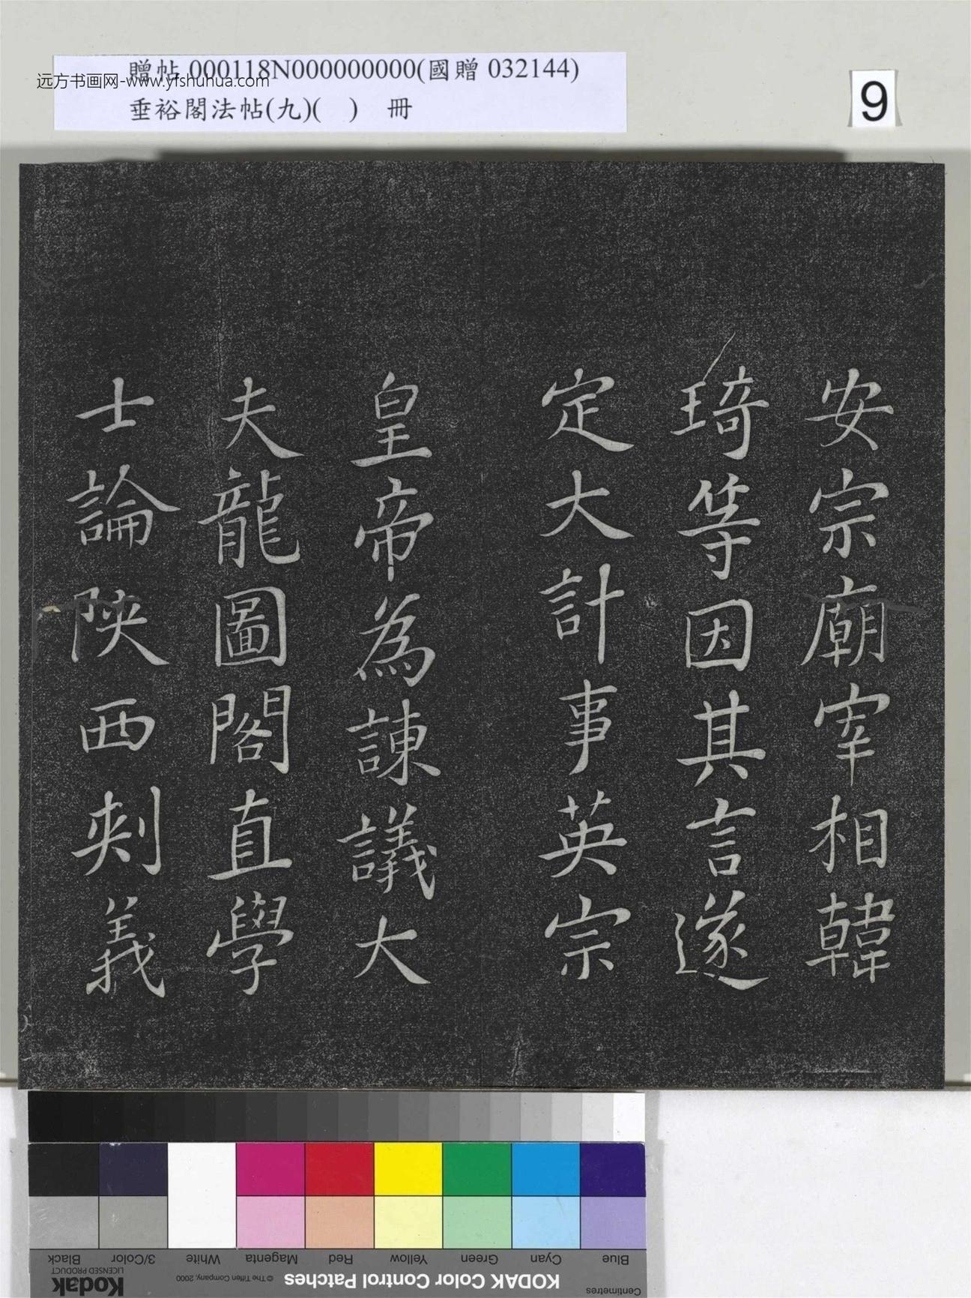 贈帖 000118N000000000(國贈 032144)
远方书画网-www.yishuhua.com
垂裕閣法帖(九)( ) 冊
9
安宗廟宰相韓
琦等因其言遂
定大計事英宗
皇帝為諫議大
夫龍圖閣直學
士論陝西刺義
Blue Cyan Green Yellow Red Magenta White 3/Color Black
Centimetres
KODAK Color Control Patches
© The Tiffen Company, 2000
Kodak
LICENSED PRODUCT